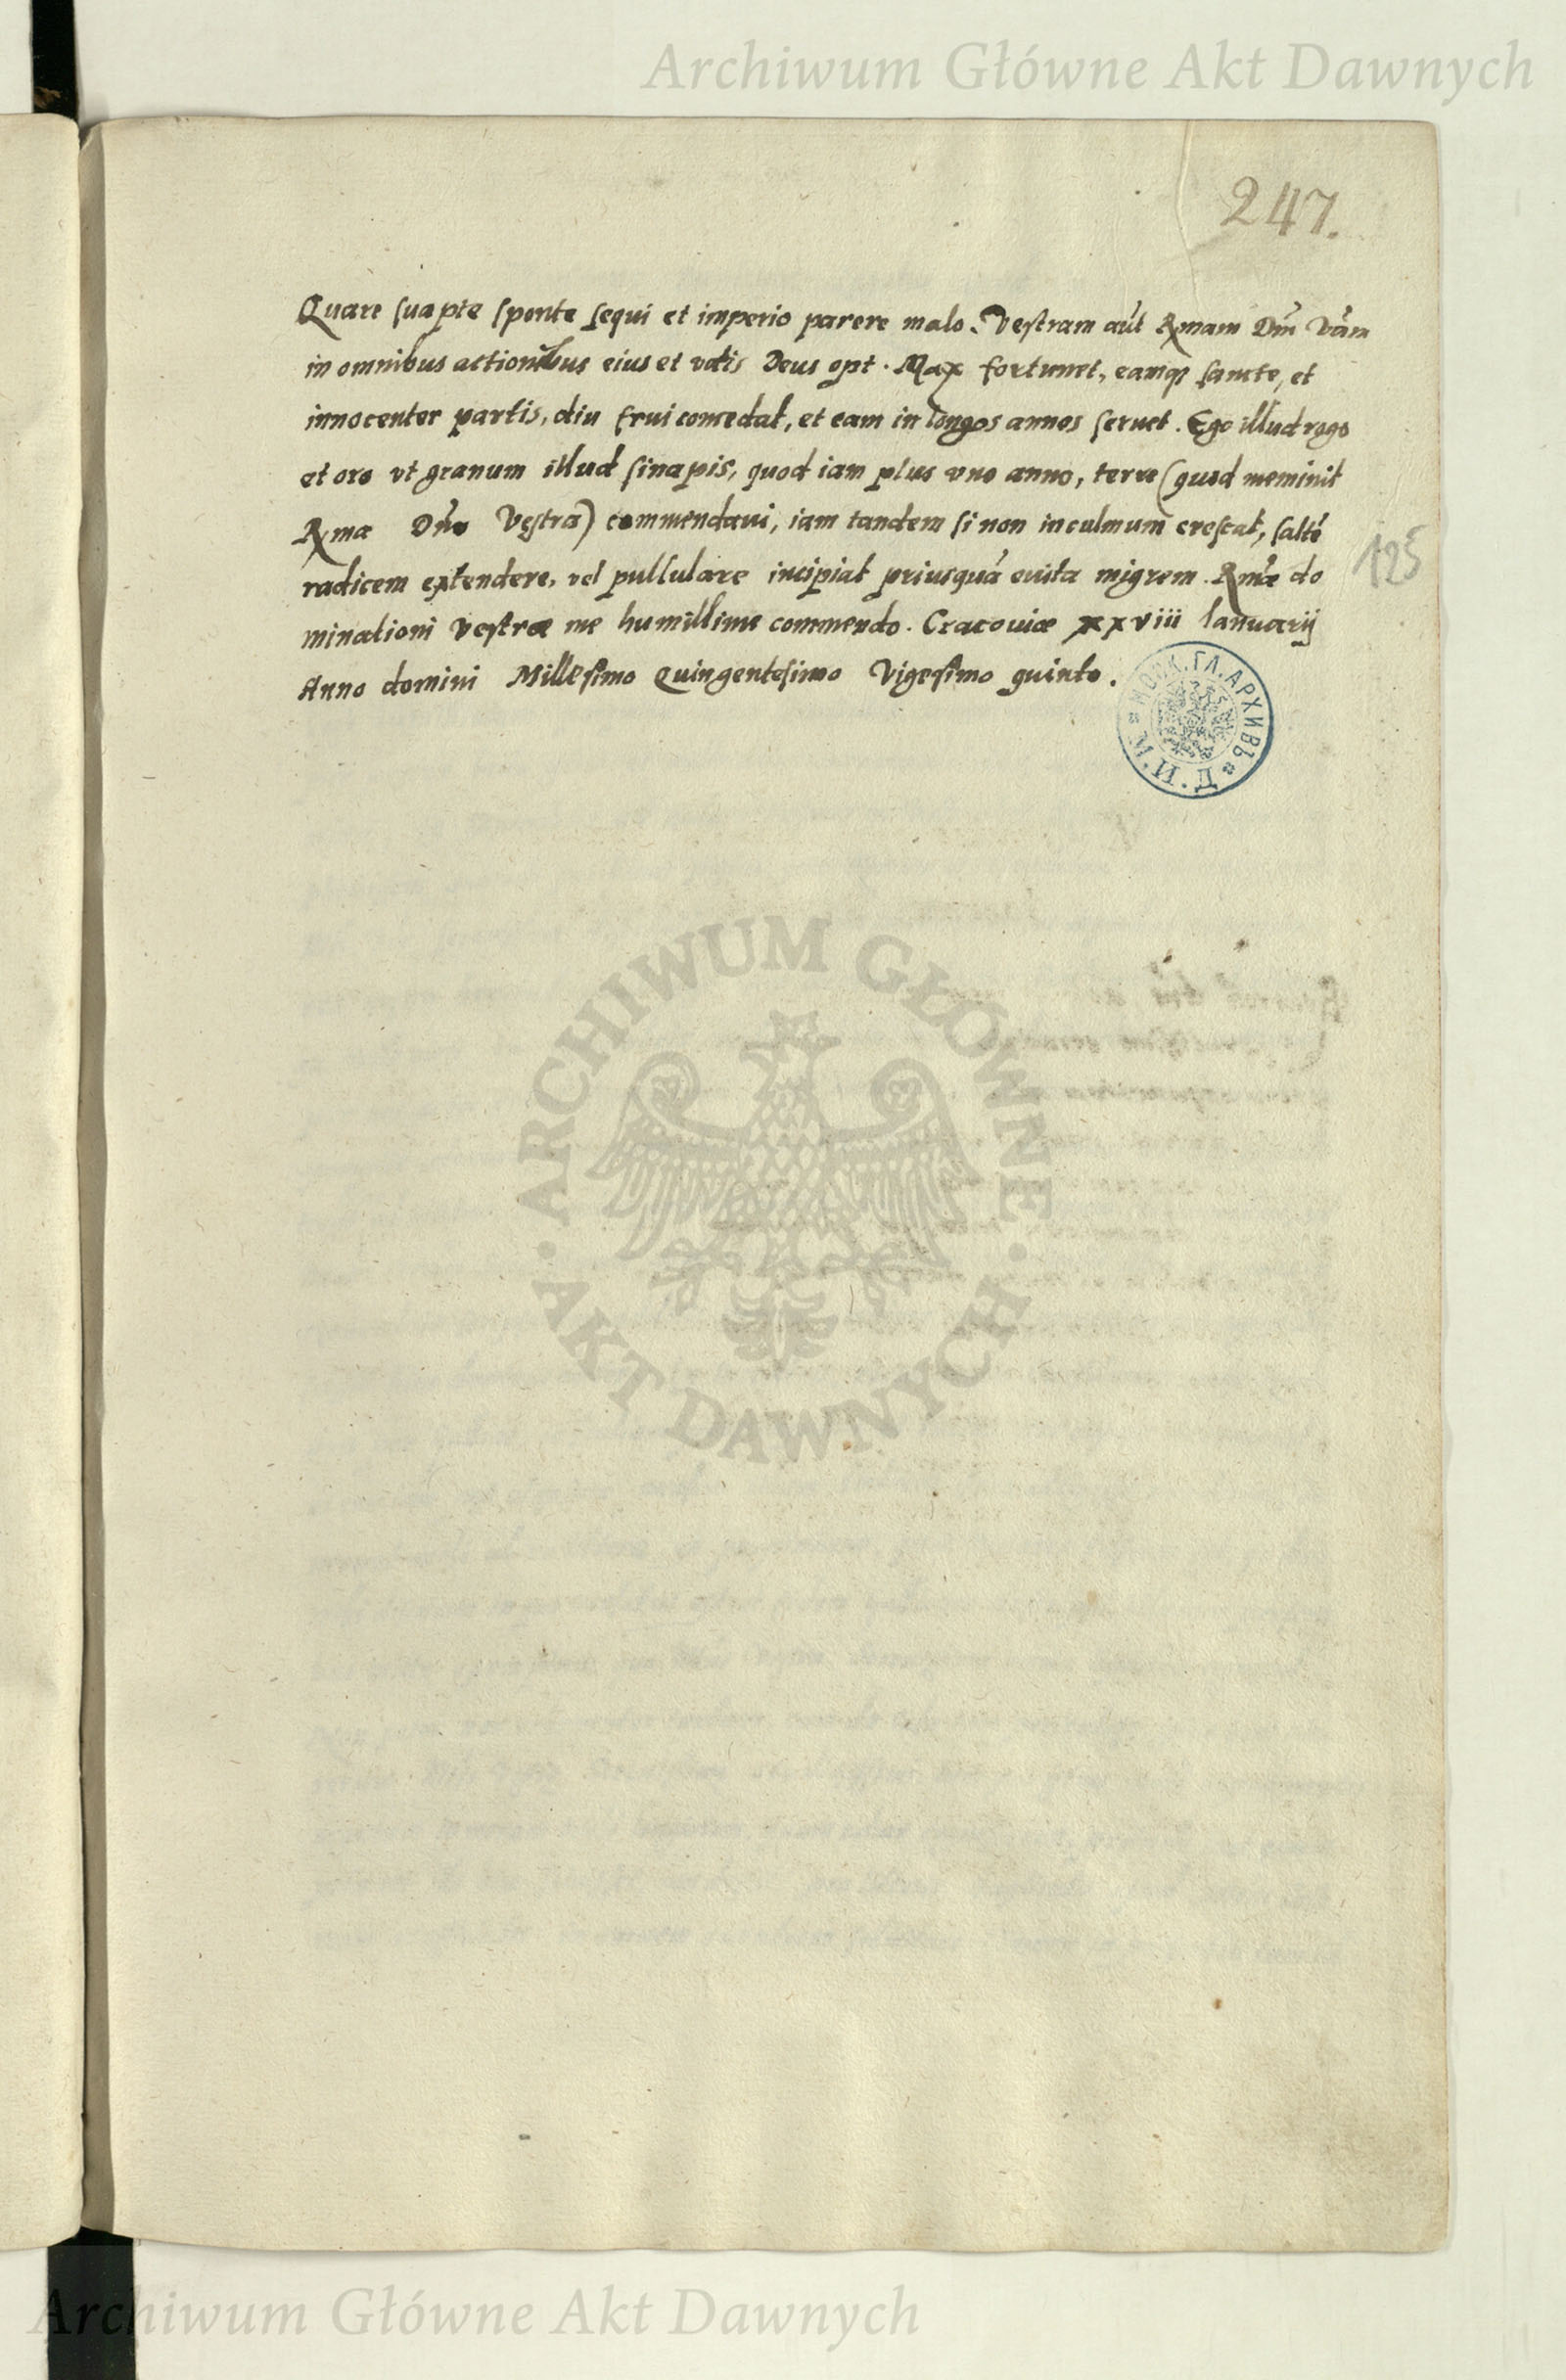 Archiwum Główne Akt Dawnych
247.
Quare suapte sponte sequi et imperio parere malo. Vestram aūt Rmam Dm̄ Vr̄am
in omnibus actionibus eius et votis Deus opt. Max fortunet, eamqȝ sancte, et
innocenter partis, diu frui concedat, et eam in longos annos seruet. Ego illud rogo
et oro vt granum illud sinapis, quod iam plus vno anno, terre (quod meminit
Rma Dn̄o Vestra) commendaui, iam tandem si non in culmum crescat, saltē
radicem extendere, vel pullulare incipiat priusquā evita migrem. Rmæ do
minationi Vestræ me humillime commendo. Cracouiæ xxviii Ianuarij
Anno domini Millesimo Quingentesimo Vigesimo quinto.
125
МОСК. ГЛ. АРХИВЪ М. И. Д.
ARCHIWUM GŁÓWNE
AKT DAWNYCH
Archiwum Główne Akt Dawnych